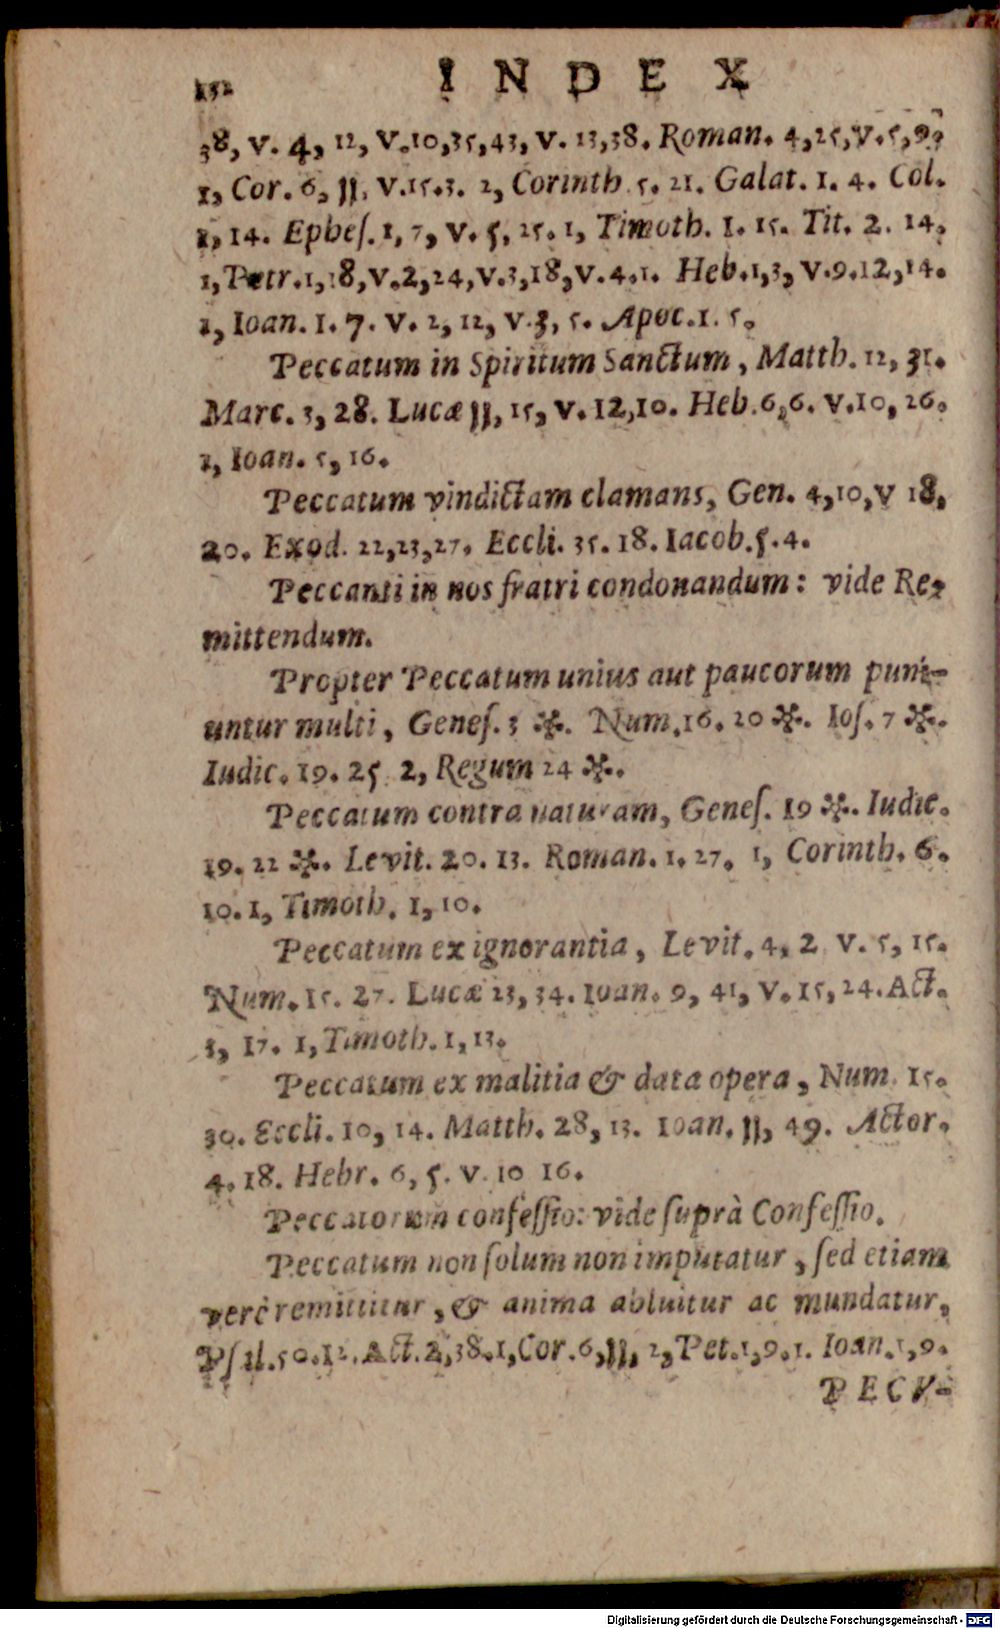 152 INDEX
38, v. 4, 12, v.10,35,43, v. 13,38. Roman. 4,25,v.5,9?
1, Cor. 6, 11, v.15.3. 2, Corinth 5. 21. Galat. 1. 4. Col.
2, 14. Epheſ. 1, 7, v. 5, 25. 1, Timoth. 1. 15. Tit. 2. 14.
1, Petr.1,18,v.2,24,v.3,18,v.4.1. Heb.1,3, v.9.12,14.
1, Ioan. 1. 7. v. 2, 12, v.3, 5. Apoc.1. 5.
Peccatum in Spiritum Sanctum, Matth. 12, 31.
Marc. 3, 28. Lucæ 11, 15, v. 12,10. Heb.6,6. v.10, 26.
1, Ioan. 5, 16.
Peccatum vindictam clamans, Gen. 4,10,v 18,
20. Exod. 22,23,27. Eccli. 35. 18. Iacob.5.4.
Peccanti in nos fratri condonandum: vide Re-
mittendum.
Propter Peccatum unius aut paucorum puni-
untur multi, Geneſ. 3 ✲. Num.16. 20 ✲. Ioſ. 7 ✲.
Iudic. 19. 25 2, Regum 24 ✲.
Peccatum contra naturam, Geneſ. 19 ✲. Iudic.
19. 22 ✲. Levit. 20. 13. Roman. 1. 27. 1, Corinth. 6.
10. 1, Timoth. 1, 10.
Peccatum ex ignorantia, Levit. 4, 2 v. 5, 15.
Num. 15. 27. Lucæ 23, 34. Ioan. 9, 41, v. 15, 24. Act.
3, 17. 1, Timoth. 1, 13.
Peccatum ex malitia & data opera, Num. 15.
30. Eccli. 10, 14. Matth. 28, 13. Ioan. 11, 49. Actor.
4. 18. Hebr. 6, 5. v. 10 16.
Peccatorum confeſſio: vide ſuprà Confeſſio.
Peccatum non ſolum non imputatur, ſed etiam
verè remittitur, & anima abluitur ac mundatur,
Pſal.50.12. Act. 2,38.1, Cor. 6,11, 2, Pet.1,9.1. Ioan.1,9.
PECV-
Digitalisierung gefördert durch die Deutsche Forschungsgemeinschaft - DFG